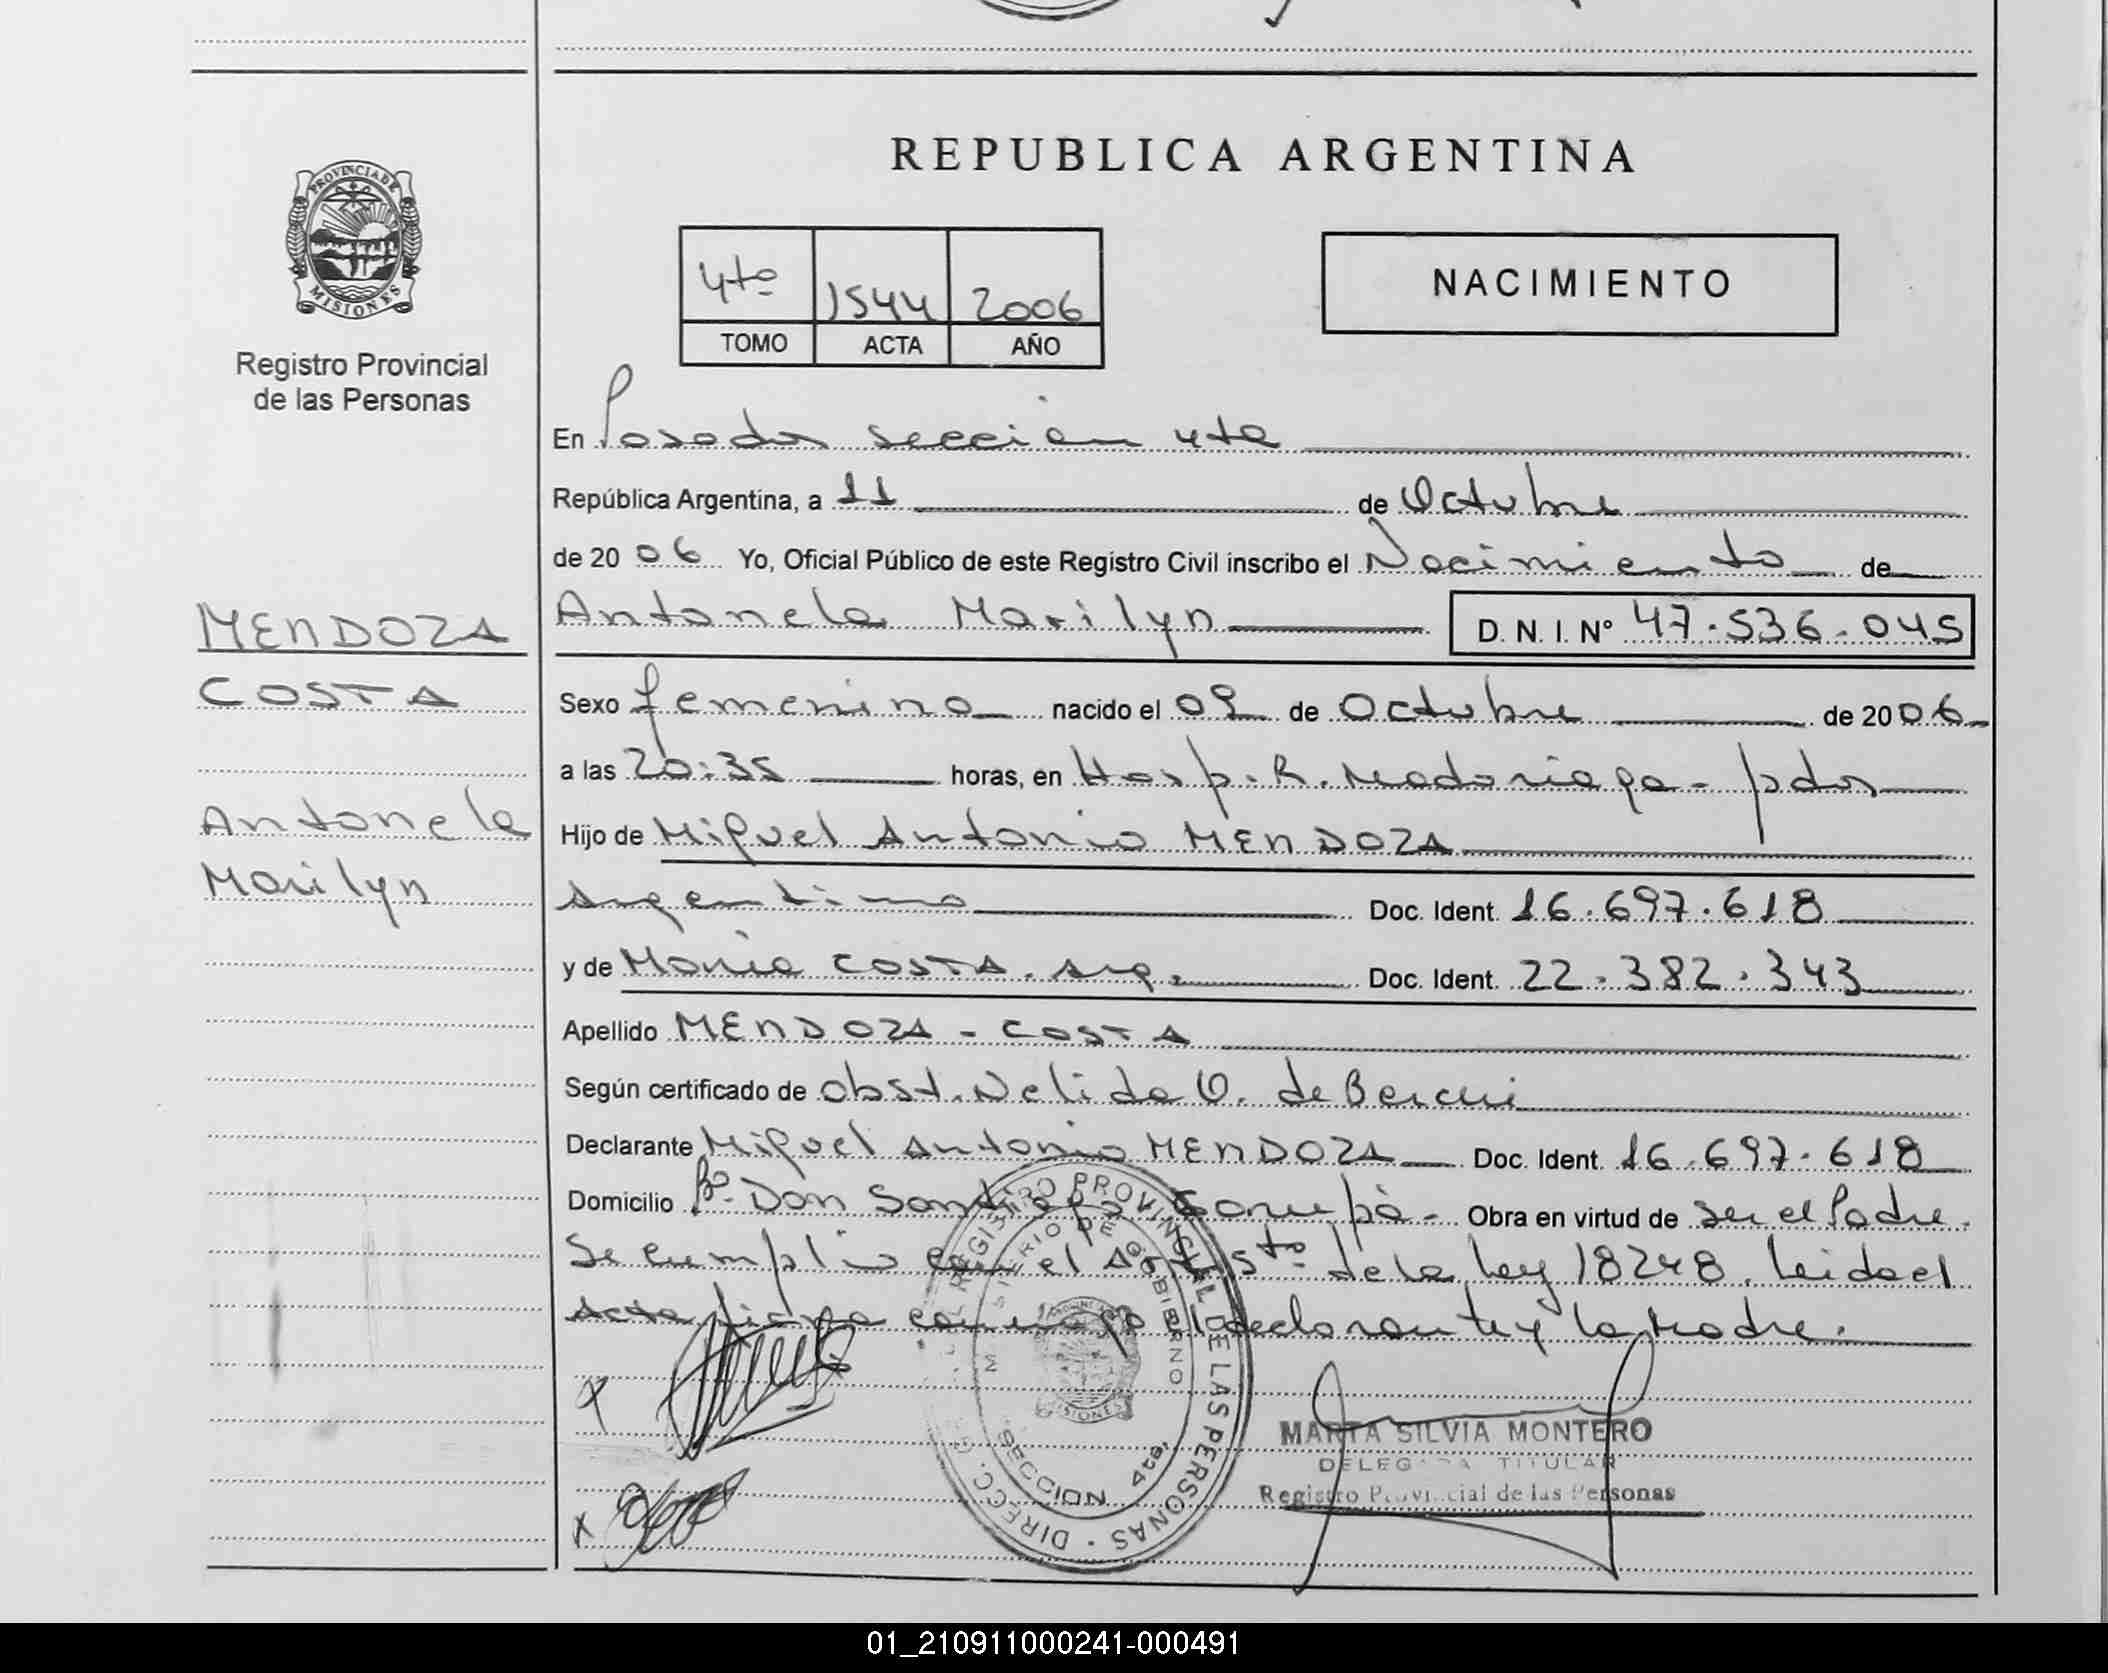 REPUBLICA ARGENTINA
PROVINCIA DE
MISIONES
Registro Provincial
de las Personas
4to 1544 2006
TOMO ACTA AÑO
NACIMIENTO
En Posadas sección 4ta
República Argentina, a 11 de Octubre
de 2006 Yo, Oficial Público de este Registro Civil inscribo el Nacimiento de
Antonela Marilyn D. N. I. N° 47.536.045
MENDOZA
COSTA
Antonela
Marilyn
Sexo femenino nacido el 09 de Octubre de 2006
a las 20:35 horas, en Hosp. R. Madariaga - pdas
Hijo de Miguel Antonio MENDOZA
argentino Doc. Ident. 16.697.618
y de María COSTA. arg. Doc. Ident. 22.382.343
Apellido MENDOZA - COSTA
Según certificado de obst. Nelida O. de
Declarante Miguel Antonio MENDOZA Doc. Ident. 16.697.618
Domicilio Bº. Don Santiago. Garupá - Obra en virtud de ser el Padre.
Se cumplio con el Art. 5to de la Ley 18248. Leida el
Acta firma conmigo el declarante y la Madre.
DIRECC. G. DEL REGISTRO PROVINCIAL DE LAS PERSONAS
MINISTERIO DE GOBIERNO
MISIONES
SECCION 4ta.
MARTA SILVIA MONTERO
DELEGADA TITULAR
Registro Provincial de las Personas
01_210911000241-000491